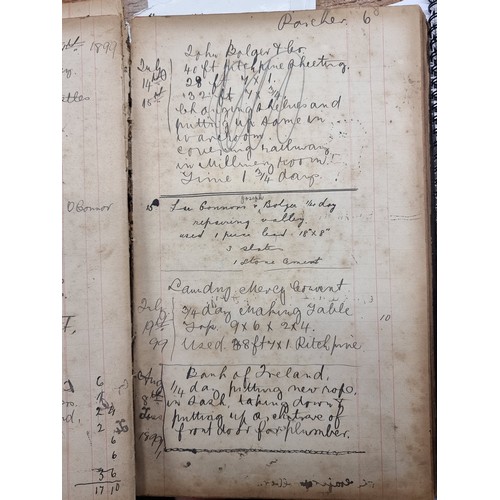 1899
O'Connor
6
1
2 4
2
6
6
3 6
17 10
6
John Bolger & Co.
July 40 ft Pitchpine Sheeting.
14th 28 ft 7 x 1.
15th 32 ft 7 x 3/4.
Changing shelves and
putting up same in
wareroom.
covering railway
in Millinery room.
Time 1 3/4 days.
15 Connors Joseph & Bolger day
repairing valley
used 1 piece lead 18" x 8"
3 slates
1 stone cement
Laundry Mercy Convent
July 3/4 day Making Table
19th Top 9 x 6 x 2 x 4.
99 Used 38 ft 7 x 1 Pitchpine
10
Bank of Ireland.
Aug 1/4 day putting new rope
8th in Sash, taking down &
putting up architrave of
1899 front door for plumber.